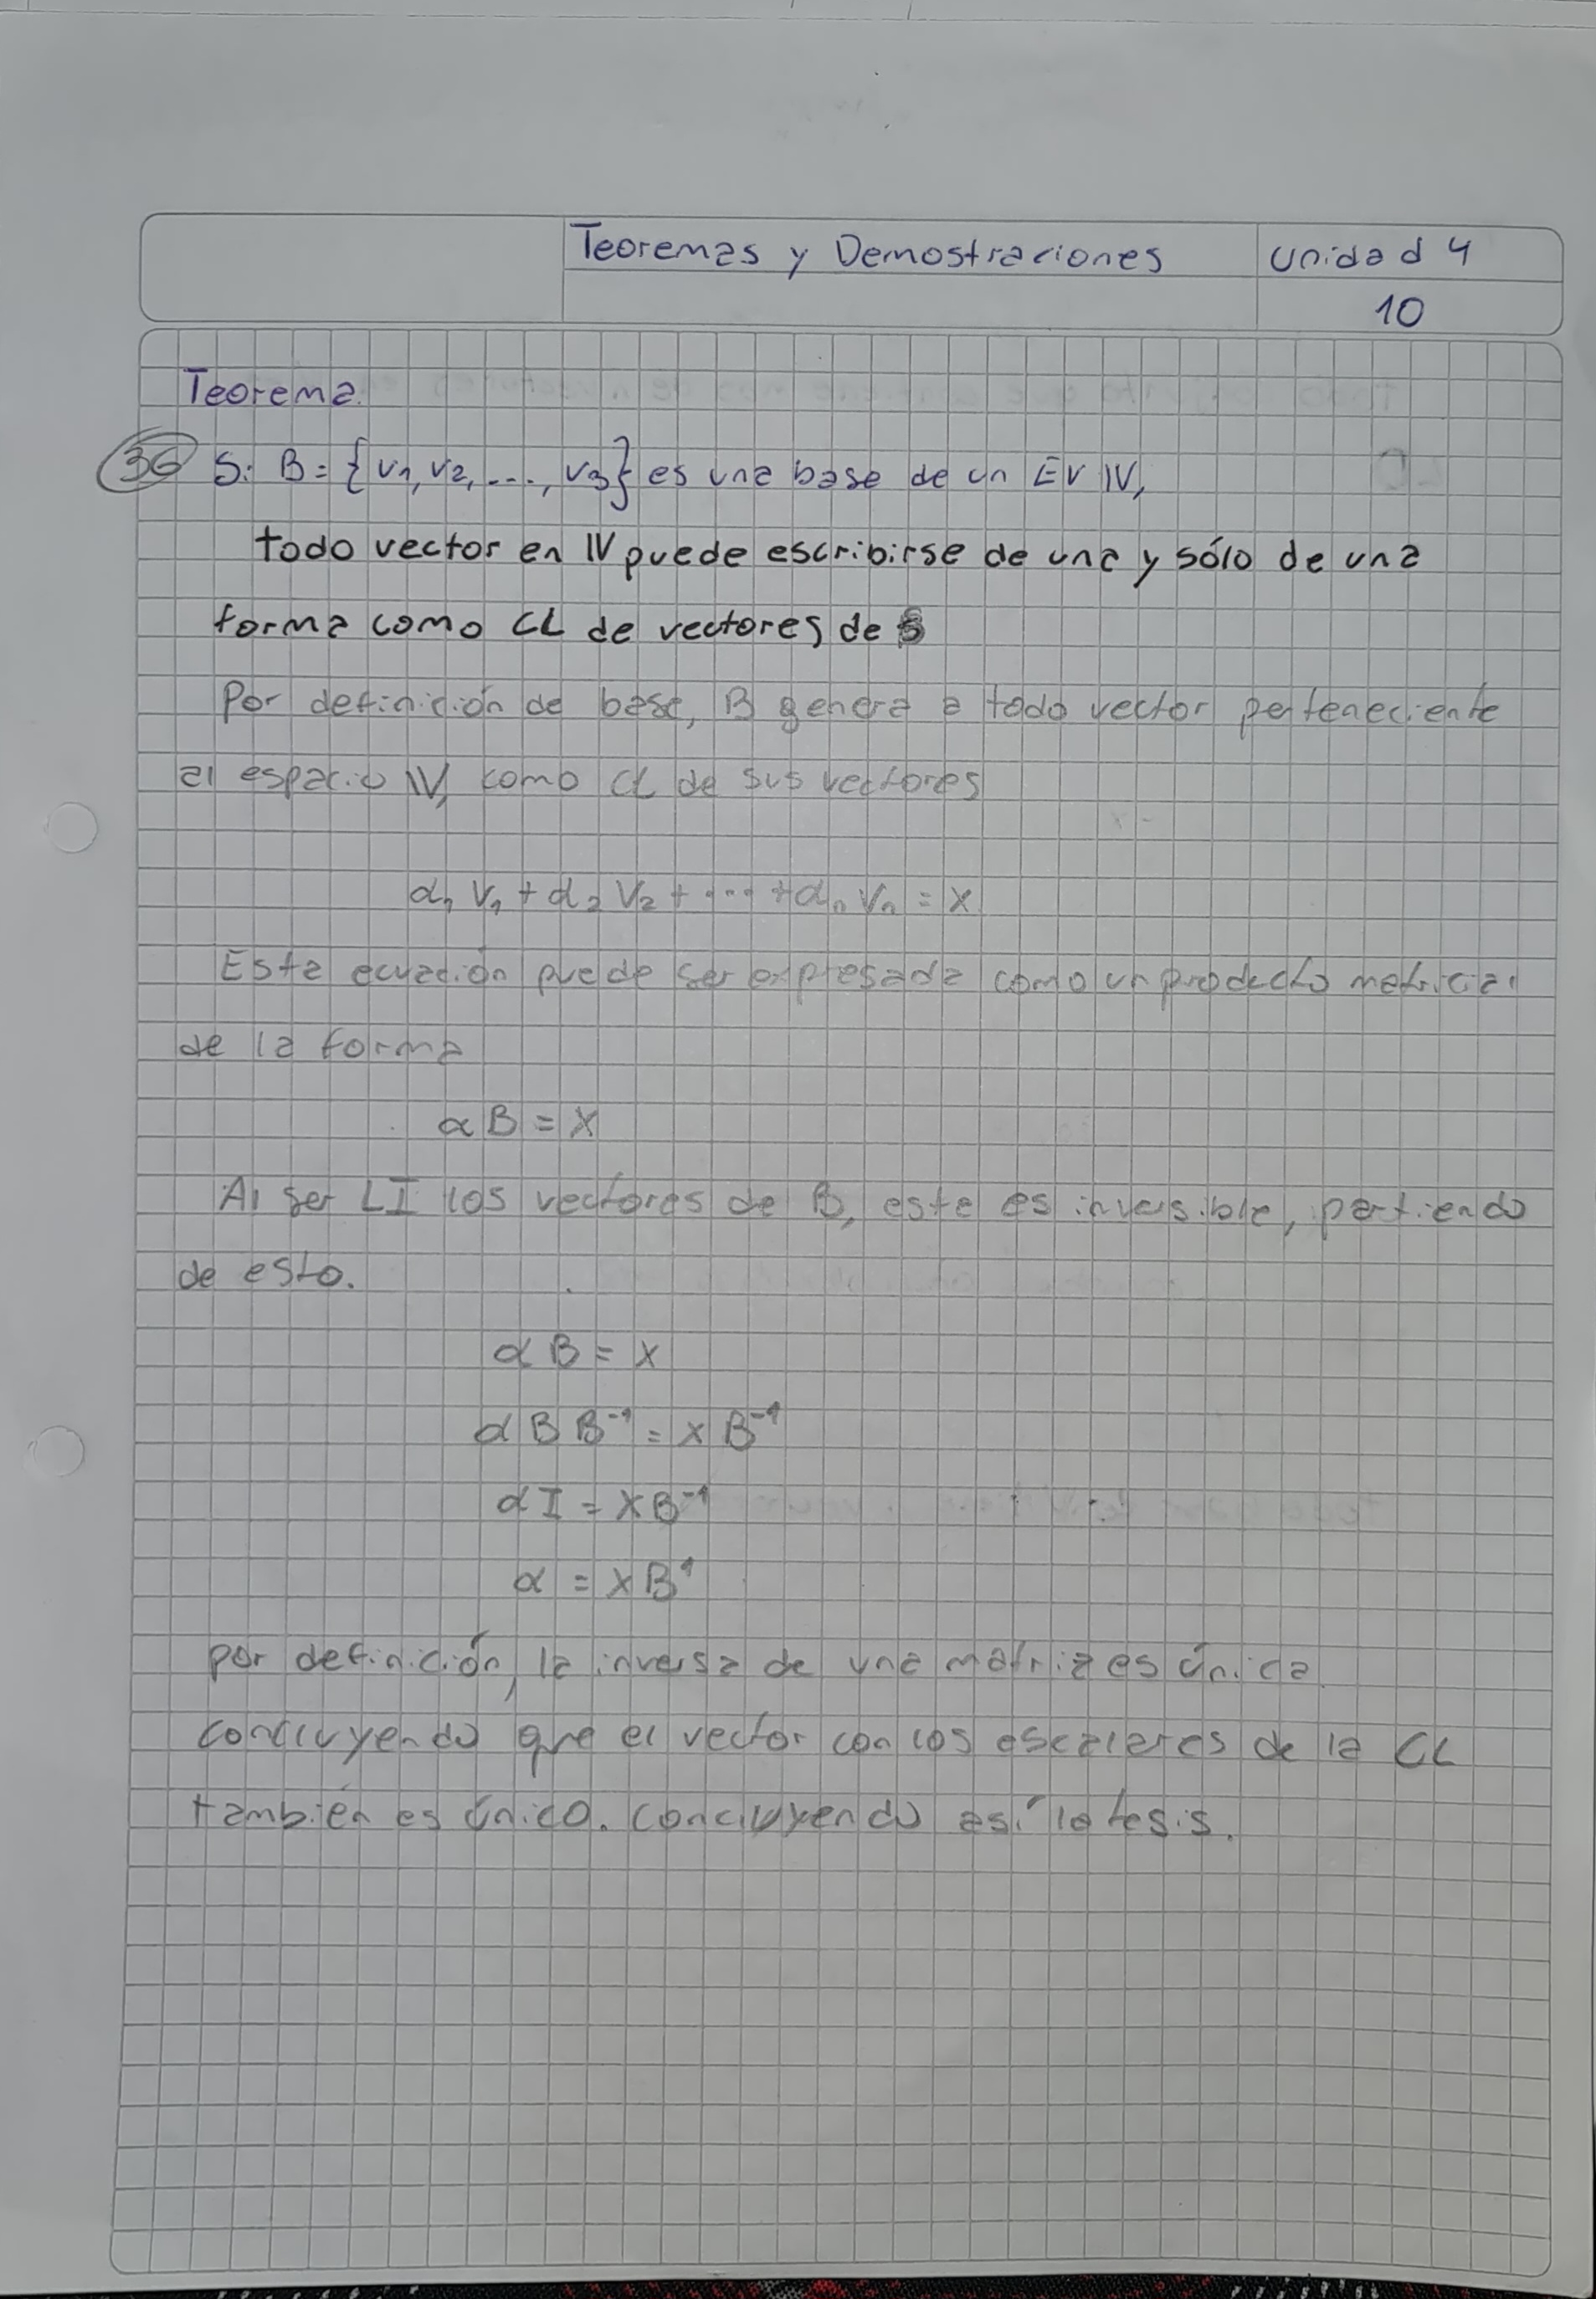 Teoremas y Demostraciones
Unidad 4
10
Teorema.
36 Si B = {v1, v2, ..., v3} es una base de un EV V,
todo vector en V puede escribirse de una y sólo de una
forma como CL de vectores de
Por definición de base, B genera a todo vector perteneciente
al espacio V, como CL de sus vectores
α1 v1 + α2 v2 + ... + αn vn = x
Esta ecuación puede ser expresada como un producto matricial
de la forma
α B = x
Al ser LI los vectores de B, este es inversible, partiendo
de esto.
α B = x
α B B⁻¹ = x B⁻¹
α I = x B⁻¹
α = x B⁻¹
por definición, la inversa de una matriz es única
concluyendo que el vector con los escalares de la CL
también es único. Concluyendo así la tesis.